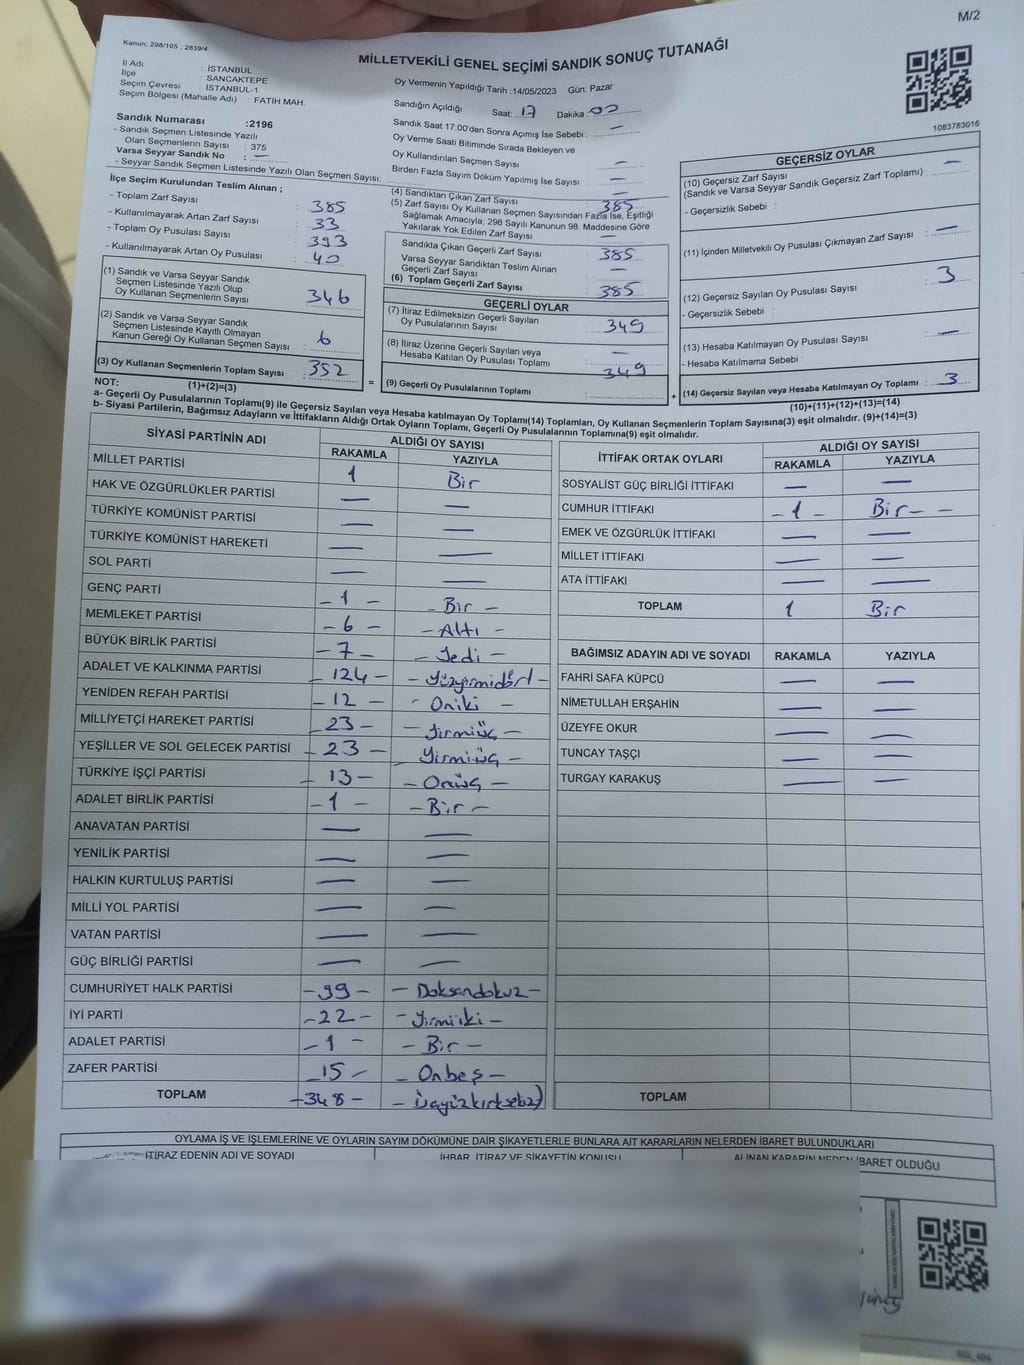 M/2
Kanun: 298/105 , 2839/4
MİLLETVEKİLİ GENEL SEÇİMİ SANDIK SONUÇ TUTANAĞI
İl Adı : İSTANBUL
İlçe : SANCAKTEPE
Seçim Çevresi : İSTANBUL-1
Seçim Bölgesi (Mahalle Adı) : FATİH MAH.
Sandık Numarası :2196
- Sandık Seçmen Listesinde Yazılı
Olan Seçmenlerin Sayısı : 375
Varsa Seyyar Sandık No : —
- Seyyar Sandık Seçmen Listesinde Yazılı Olan Seçmen Sayısı:
İlçe Seçim Kurulundan Teslim Alınan ;
- Toplam Zarf Sayısı : 385
- Kullanılmayarak Artan Zarf Sayısı : 33
- Toplam Oy Pusulası Sayısı : 393
- Kullanılmayarak Artan Oy Pusulası : 40
(1) Sandık ve Varsa Seyyar Sandık
Seçmen Listesinde Yazılı Olup
Oy Kullanan Seçmenlerin Sayısı : 346
(2) Sandık ve Varsa Seyyar Sandık
Seçmen Listesinde Kayıtlı Olmayan
Kanun Gereği Oy Kullanan Seçmen Sayısı : 6
(3) Oy Kullanan Seçmenlerin Toplam Sayısı : 352
(1)+(2)=(3)
Oy Vermenin Yapıldığı Tarih :14/05/2023 Gün: Pazar
Sandığın Açıldığı Saat: 17 Dakika : 00
Sandık Saat 17.00'den Sonra Açımış İse Sebebi : —
Oy Verme Saati Bitiminde Sırada Bekleyen ve
Oy Kullandırılan Seçmen Sayısı : —
Birden Fazla Sayım Döküm Yapılmış İse Sayısı : —
(4) Sandıktan Çıkan Zarf Sayısı : 385
(5) Zarf Sayısı Oy Kullanan Seçmen Sayısından Fazla İse, Eşitliği
Sağlamak Amacıyla, 298 Sayılı Kanunun 98. Maddesine Göre
Yakılarak Yok Edilen Zarf Sayısı : —
Sandıkta Çıkan Geçerli Zarf Sayısı : 385
Varsa Seyyar Sandıktan Teslim Alınan
Geçerli Zarf Sayısı : —
(6) Toplam Geçerli Zarf Sayısı : 385
GEÇERLİ OYLAR
(7) İtiraz Edilmeksizin Geçerli Sayılan
Oy Pusulalarının Sayısı : 349
(8) İtiraz Üzerine Geçerli Sayılan veya
Hesaba Katılan Oy Pusulası Toplamı : —
= (9) Geçerli Oy Pusulalarının Toplamı : 349
1083783016
GEÇERSİZ OYLAR
(10) Geçersiz Zarf Sayısı : —
(Sandık ve Varsa Seyyar Sandık Geçersiz Zarf Toplamı)
- Geçersizlik Sebebi :
(11) İçinden Milletvekili Oy Pusulası Çıkmayan Zarf Sayısı : —
(12) Geçersiz Sayılan Oy Pusulası Sayısı : 3
- Geçersizlik Sebebi :
(13) Hesaba Katılmayan Oy Pusulası Sayısı : —
- Hesaba Katılmama Sebebi :
+ (14) Geçersiz Sayılan veya Hesaba Katılmayan Oy Toplamı : 3
(10)+(11)+(12)+(13)=(14)
NOT:
a- Geçerli Oy Pusulalarının Toplamı(9) ile Geçersiz Sayılan veya Hesaba katılmayan Oy Toplamı(14) Toplamları, Oy Kullanan Seçmenlerin Toplam Sayısına(3) eşit olmalıdır. (9)+(14)=(3)
b- Siyasi Partilerin, Bağımsız Adayların ve İttifakların Aldığı Ortak Oyların Toplamı, Geçerli Oy Pusulalarının Toplamına(9) eşit olmalıdır.
SİYASİ PARTİNİN ADI ALDIĞI OY SAYISI
RAKAMLA YAZIYLA
MİLLET PARTİSİ 1 Bir
HAK VE ÖZGÜRLÜKLER PARTİSİ — —
TÜRKİYE KOMÜNİST PARTİSİ — —
TÜRKİYE KOMÜNİST HAREKETİ — —
SOL PARTİ — —
GENÇ PARTİ - 1 - - Bir -
MEMLEKET PARTİSİ - 6 - - Altı -
BÜYÜK BİRLİK PARTİSİ - 7 - - Yedi -
ADALET VE KALKINMA PARTİSİ - 124 - - Yüzyirmidört -
YENİDEN REFAH PARTİSİ - 12 - - Oniki -
MİLLİYETÇİ HAREKET PARTİSİ - 23 - - Yirmiüç -
YEŞİLLER VE SOL GELECEK PARTİSİ - 23 - Yirmiüç -
TÜRKİYE İŞÇİ PARTİSİ - 13 - - Onüç -
ADALET BİRLİK PARTİSİ - 1 - - Bir -
ANAVATAN PARTİSİ — —
YENİLİK PARTİSİ — —
HALKIN KURTULUŞ PARTİSİ — —
MİLLİ YOL PARTİSİ — —
VATAN PARTİSİ — —
GÜÇ BİRLİĞİ PARTİSİ — —
CUMHURİYET HALK PARTİSİ - 99 - - Doksandokuz -
İYİ PARTİ - 22 - - Yirmiiki -
ADALET PARTİSİ - 1 - - Bir -
ZAFER PARTİSİ - 15 - - Onbeş -
TOPLAM - 348 - - Üçyüzkırksekiz
İTTİFAK ORTAK OYLARI ALDIĞI OY SAYISI
RAKAMLA YAZIYLA
SOSYALİST GÜÇ BİRLİĞİ İTTİFAKI — —
CUMHUR İTTİFAKI - 1 - Bir - -
EMEK VE ÖZGÜRLÜK İTTİFAKI — —
MİLLET İTTİFAKI — —
ATA İTTİFAKI — —
TOPLAM 1 Bir
BAĞIMSIZ ADAYIN ADI VE SOYADI RAKAMLA YAZIYLA
FAHRİ SAFA KÜPCÜ — —
NİMETULLAH ERŞAHİN — —
ÜZEYFE OKUR — —
TUNCAY TAŞÇI — —
TURGAY KARAKUŞ — —
TOPLAM
OYLAMA İŞ VE İŞLEMLERİNE VE OYLARIN SAYIM DÖKÜMÜNE DAİR ŞİKAYETLERLE BUNLARA AİT KARARLARIN NELERDEN İBARET BULUNDUKLARI
İTİRAZ EDENİN ADI VE SOYADI İHBAR, İTİRAZ VE ŞİKAYETİN KONUSU ALINAN KARARIN NEDEN İBARET OLDUĞU